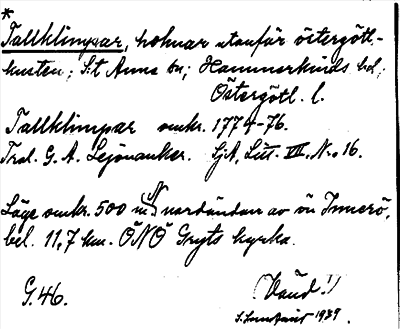 *
Tallklimpar, holmar utanför östergötl.-
kusten; S:t Anna sn; Hammarkinds hd;
Östergötl. l.
Tallklimpar omkr. 1774-76.
Trol. G. A. Lejonanker. SjA, Litt. VII. N:o 16.
Läge omkr. 500 m N nordändan av ön Innerö,
bel. 11,7 km. ÖNÖ Gryts kyrka.
G. 46. Vänd!
1939